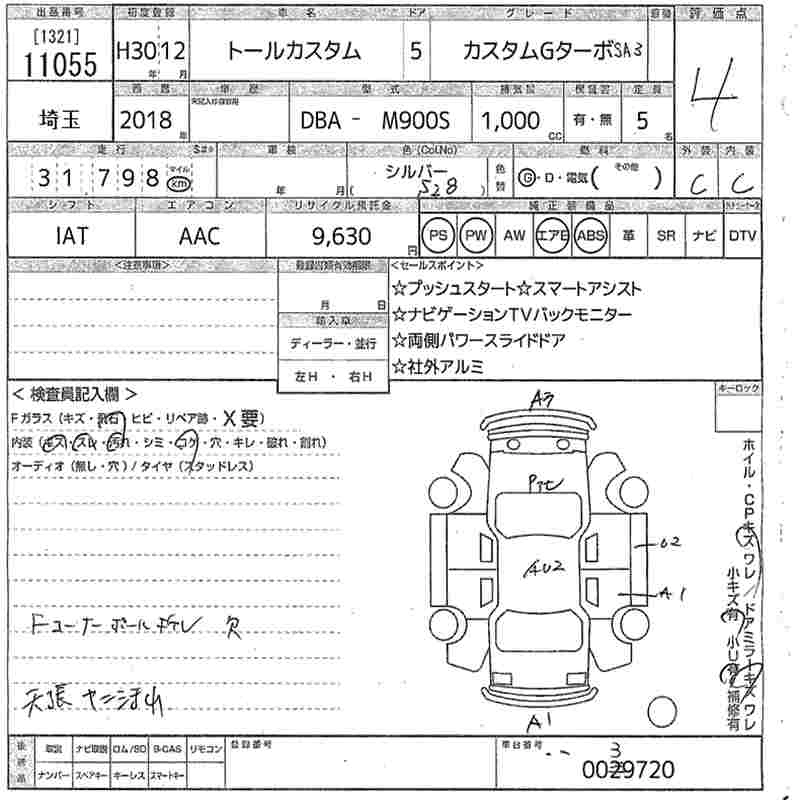 出品番号 初度登録 車名 ドア グレード 評価点
[1321]
11055 H30 12 年 月 トールカスタム 5 カスタムGターボSA3 4
西暦 車歴 型式 排気量 保証書 定員
埼玉 2018 年 DBA - M900S 1,000 CC 有・無 5 名
走行 車検 色(Col.No) 燃料 外装 内装
31,798 マイル km 年 月 シルバー ( 528 ) 色替 G・D・電気( その他 ) C C
シフト エアコン リサイクル預託金 純正装備品
IAT AAC 9,630 円 PS PW AW エアB ABS 革 SR ナビ DTV
<注意事項> 登録書類有効期限 <セールスポイント>
月 日
☆プッシュスタート☆スマートアシスト
☆ナビゲーションTVバックモニター
輸入車
ディーラー・並行
☆両側パワースライドドア
左H・右H
☆社外アルミ
<検査員記入欄>
キーロック
Fガラス(キズ・飛石 ヒビ・リペア跡・X要)
内装(キズ・スレ・汚れ・シミ・コゲ・穴・キレ・破れ・割れ)
オーディオ(無し・穴)/タイヤ(スタッドレス)
A3
AU2
U2
A1
A1
Fコーナーポール折レ 欠
天張 ヤニ汚れ
ホイル・CPキズワレ/ドアミラーキズワレ
小キズ有 小U有 補修有
後送品 取説 ナビ取説 ロム/SD B-CAS リモコン 登録番号 車台番号
ナンバー スペアキー キーレス スマートキー
3
0029720